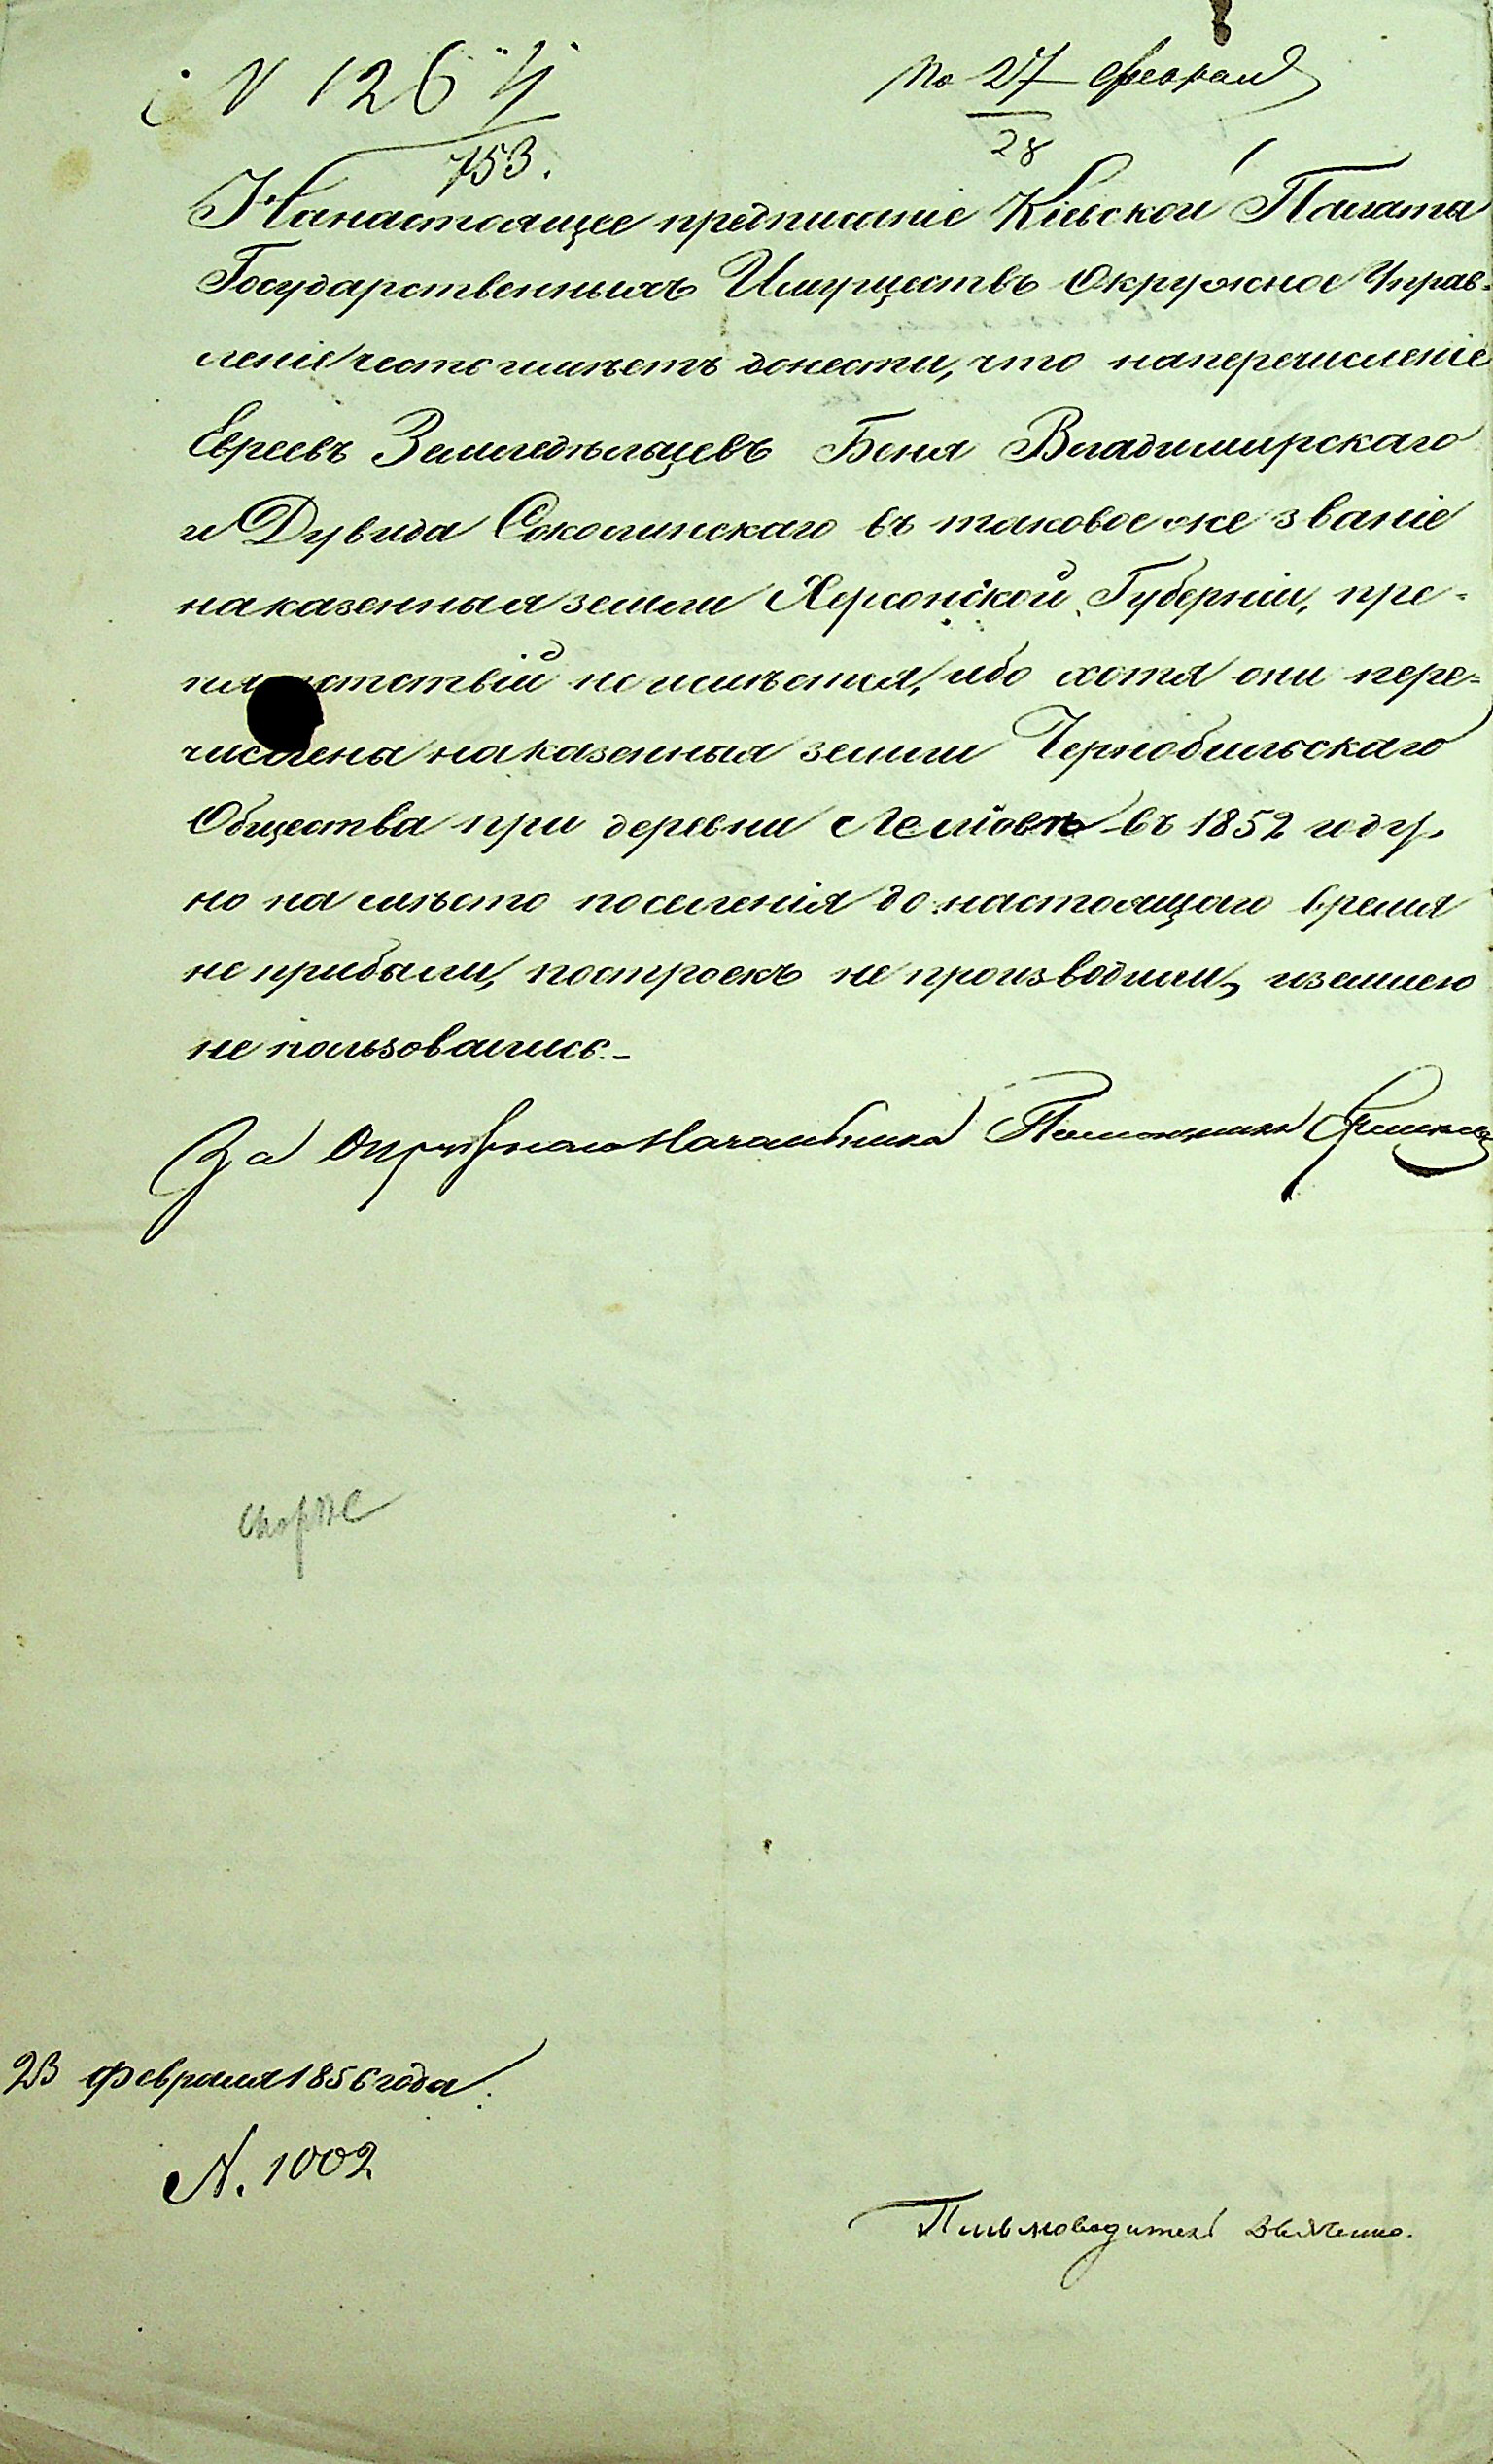 N 1264
753.
По 27 Февраля
28
На настоящее предписаніе Кіевской Палаты
Государственныхъ Имуществъ Окружное Управ-
леніе честь имѣетъ донести, что на перечисленіе
Евреевъ Земледѣльцевъ Беня Владимирскаго
и Дувида Соколинскаго въ таковое же званіе
на казенныя земли Херсонской Губерніи, пре-
пятствій не имѣется, ибо хотя они пере-
числена на казенныя земли Чернобыльскаго
Общества при деревни въ 1852 году,
но на мѣсто поселенія до настоящаго время
не прибыли, построекъ не производили, и землею
не пользовались.-
За Окружнаго Начальника Помощникъ
скорѣе
23 Февраля 1856 года.
N. 1002
Письмоводитель